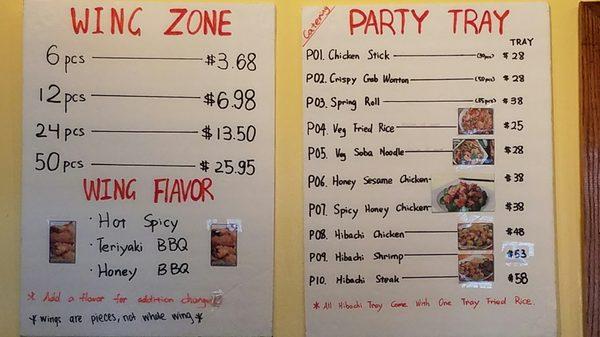 WING ZONE
6 pcs $3.68
12 pcs $6.98
24 pcs $13.50
50 pcs $25.95
WING FLAVOR
· Hot Spicy
· Teriyaki BBQ
· Honey BBQ
* Add a flavor for addition change
*wings are pieces, not whole wing*
Catering
PARTY TRAY
TRAY
P01. Chicken Stick $28
P02. Crispy Crab Wonton (50pcs) $28
P03. Spring Roll $38
P04. Veg Fried Rice $25
P05. Veg Soba Noodle $28
P06. Honey Sesame Chicken $38
P07. Spicy Honey Chicken $38
P08. Hibachi Chicken $48
P09. Hibachi Shrimp $53
P10. Hibachi Steak $58
* All Hibachi Tray Come With One Tray Fried Rice.